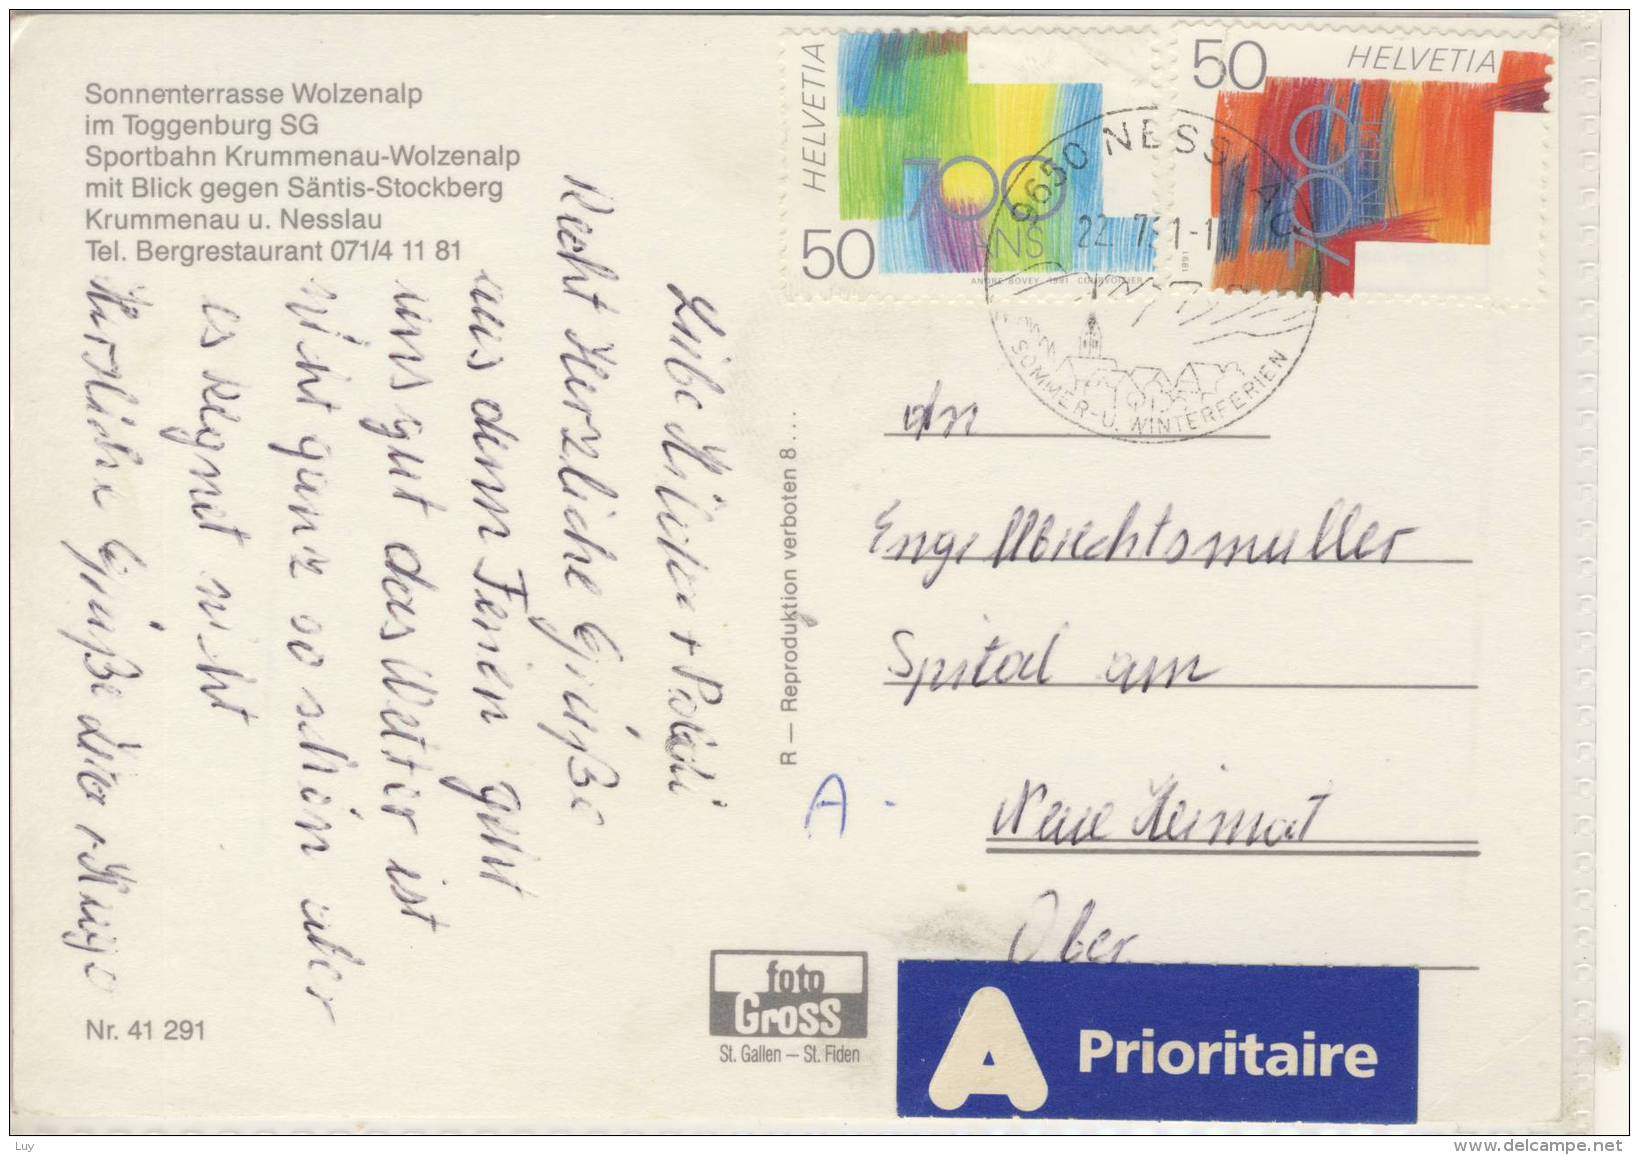 Sonnenterrasse Wolzenalp
im Toggenburg SG
Sportbahn Krummenau-Wolzenalp
mit Blick gegen Säntis-Stockberg
Krummenau u. Nesslau
Tel. Bergrestaurant 071/4 11 81
Recht Herzliche Grüße
aus denn Ferien geht
uns gut das Wetter ist
nicht ganz so schön aber
es Regnet nicht
Herzliche Grüße
Nr. 41 291
R — Reproduktion verboten 8...
foto
Gross
St. Gallen – St. Fiden
HELVETIA
700
ANS
50
ANDRÉ BOVEY 1991 COURVOISIER
50
HELVETIA
700
1991
9650 NESSLAU
22. 7. 91-1
SOMMER- U. WINTERFERIEN
An
Spital am
Neue Heimat
Ober
A
A Prioritaire
Luy
www.delcampe.net